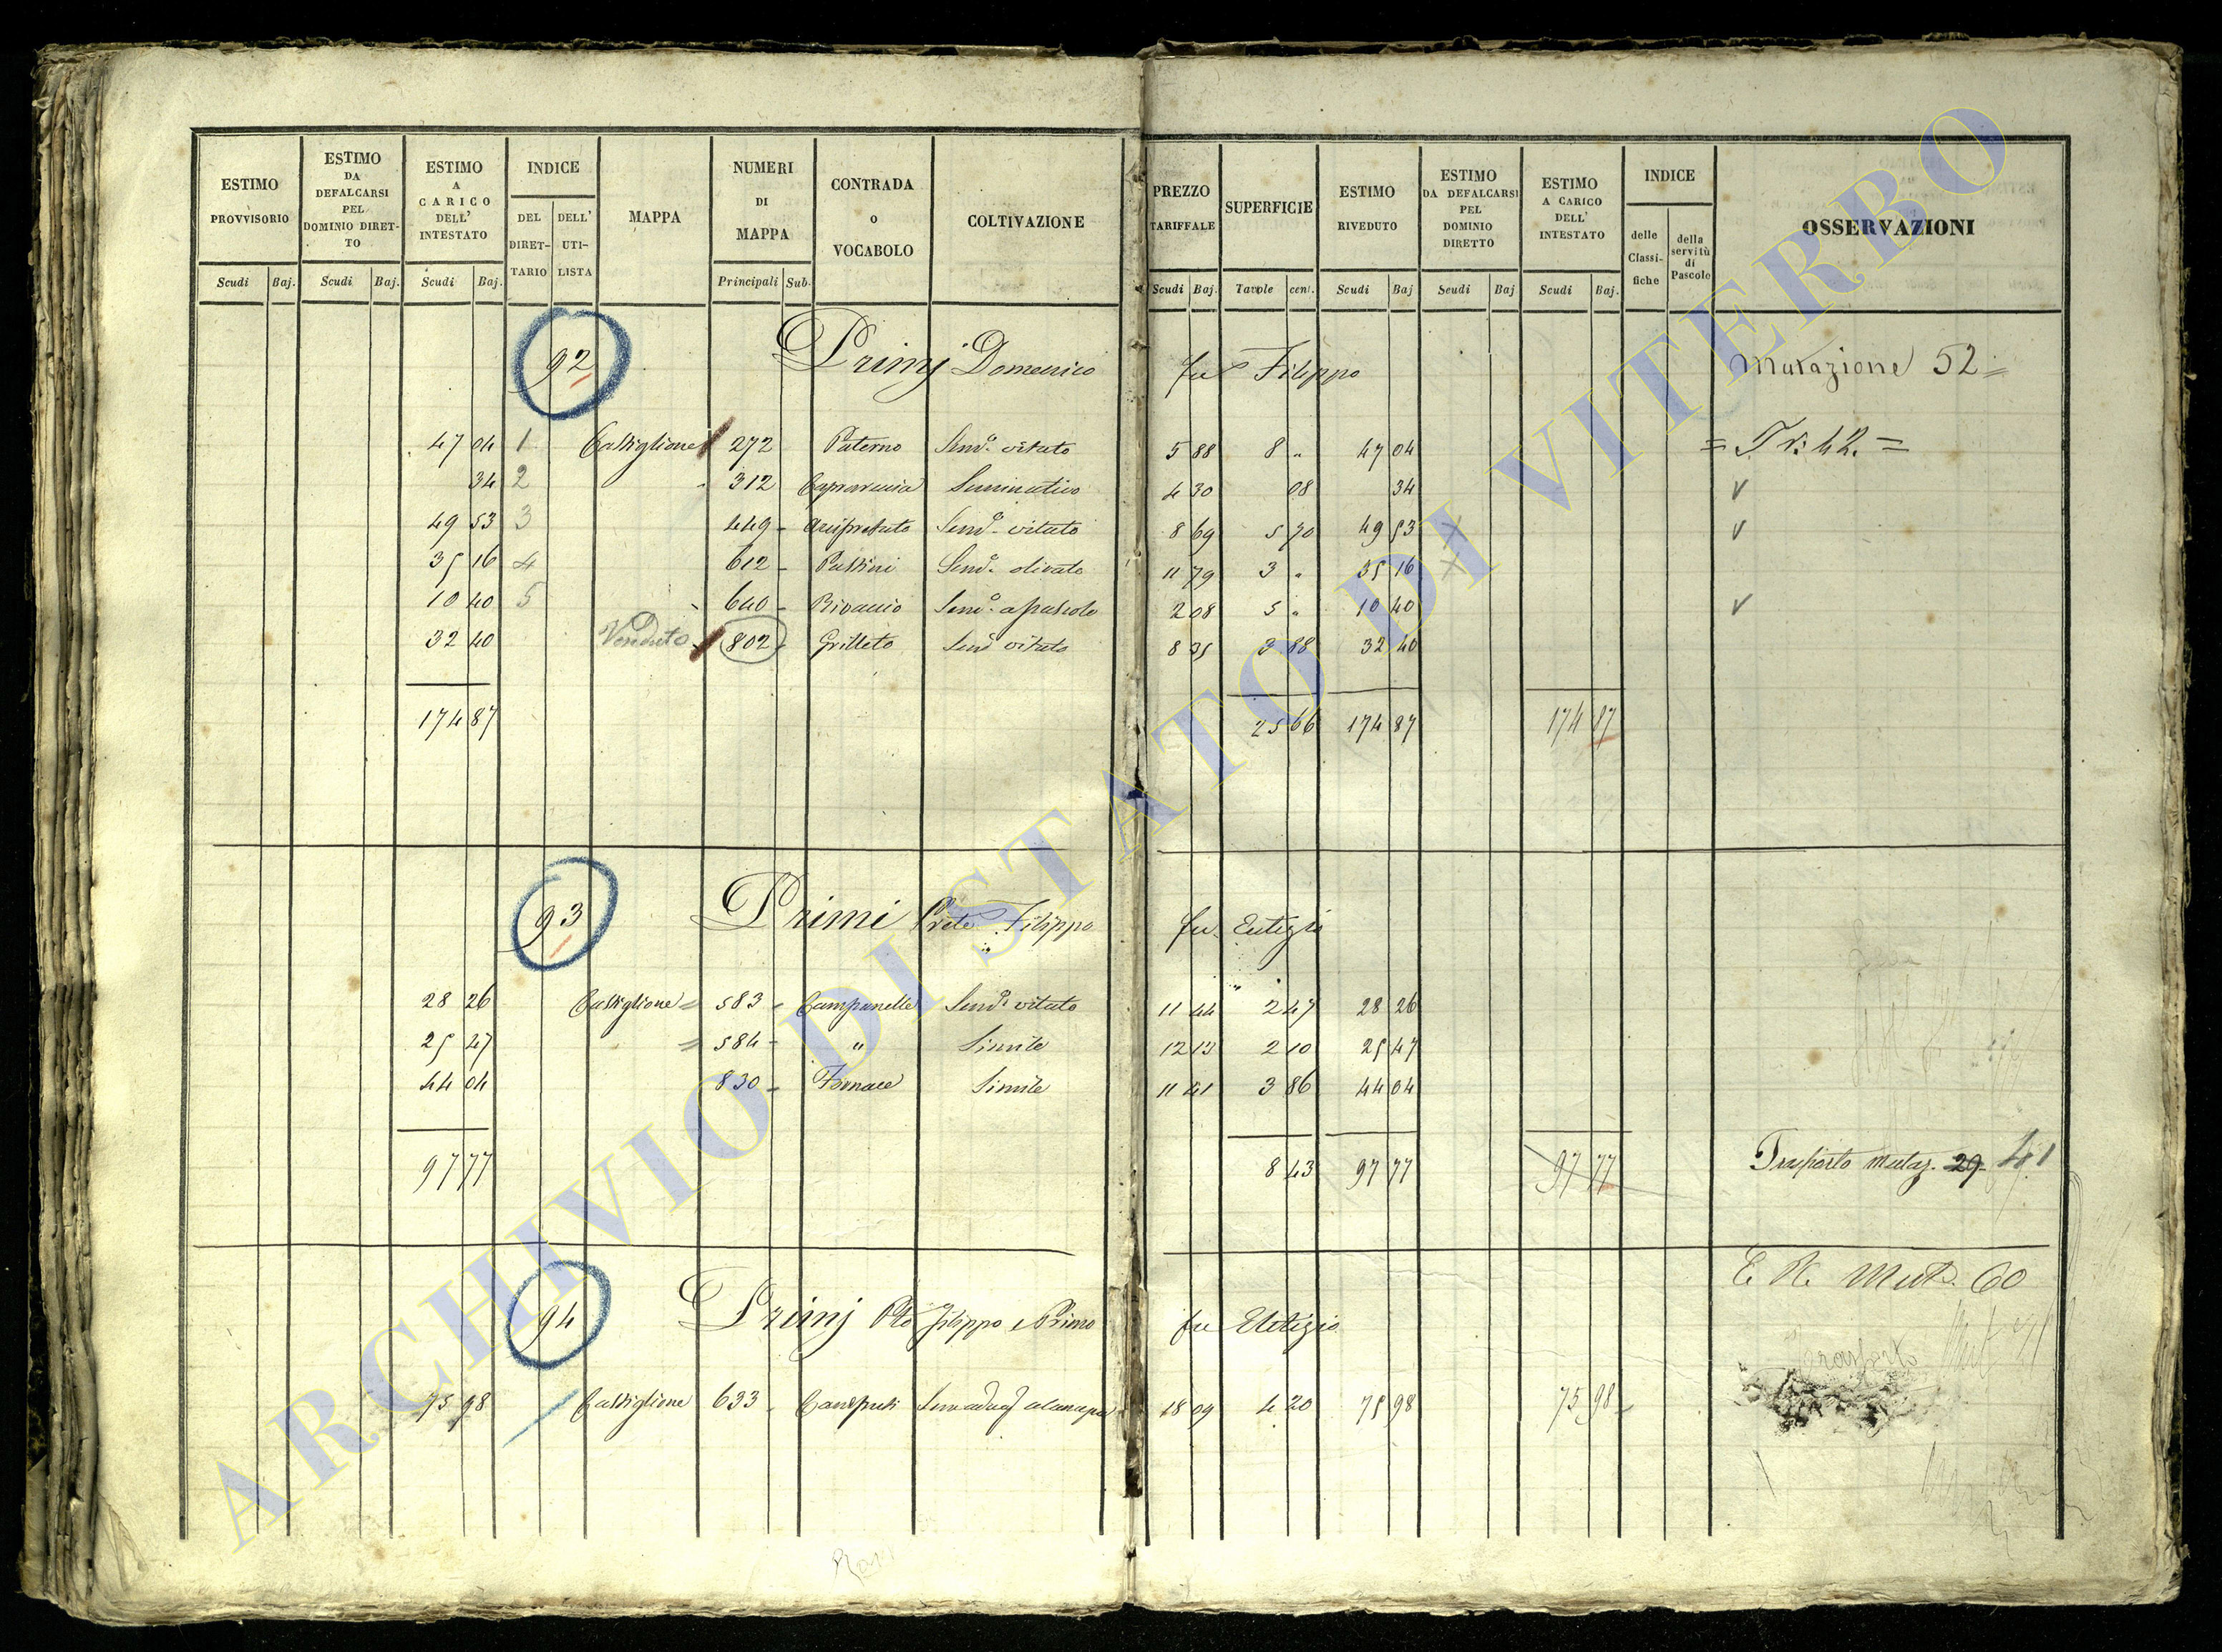 ESTIMO PROVVISORIO
ESTIMO DA DEFALCARSI PEL DOMINIO DIRETTO
ESTIMO A CARICO DELL' INTESTATO
INDICE
DEL DIRETTARIO
DELL' UTILISTA
MAPPA
NUMERI DI MAPPA
CONTRADA o VOCABOLO
COLTIVAZIONE
PREZZO TARIFFALE
SUPERFICIE
ESTIMO RIVEDUTO
ESTIMO DA DEFALCARSI PEL DOMINIO DIRETTO
ESTIMO A CARICO DELL' INTESTATO
INDICE
delle Classifiche
della servitù di Pascolo
OSSERVAZIONI
Scudi Baj. Scudi Baj. Scudi Baj. Principali Sub. Scudi Baj. Tavole cent. Scudi Baj Scudi Baj Scudi Baj.
92 Primj Domenico fu Filippo Mutazione 52
47 04 1 Castiglione 272 Paterno Semo. vitato 5 88 8 " 47 04 = Tr: 42. =
34 2 312 Seminativo 4 30 08 34 v
49 53 3 449 Semo. vitato 8 69 5 70 49 53 x v
35 16 4 612 Pastini Semo. olivato 11 79 3 " 35 16 x
10 40 5 640 Semo. a pascolo 2 08 5 " 10 40 v
32 40 Venduto 802 Grilleto Semo vitato 8 35 3 88 32 40
174 87 25 66 174 87 174 87
93 Primi Prete Filippo fu Eutizio
28 26 Castiglione 583 Campanelle Semo. vitato 11 44 2 47 28 26
25 47 584 " Simile 12 13 2 10 25 47
44 04 830 Fornace Simile 11 41 3 86 44 04
97 77 8 43 97 77 97 77 Trasporto mutaz. 29 41
E. R. Mut. 60
94 Primj Pte Filippo e Primo fu Eutizio
Trasporto
75 98 Castiglione 633 18 09 4 20 75 98 75 98
ARCHIVIO DI STATO DI VITERBO